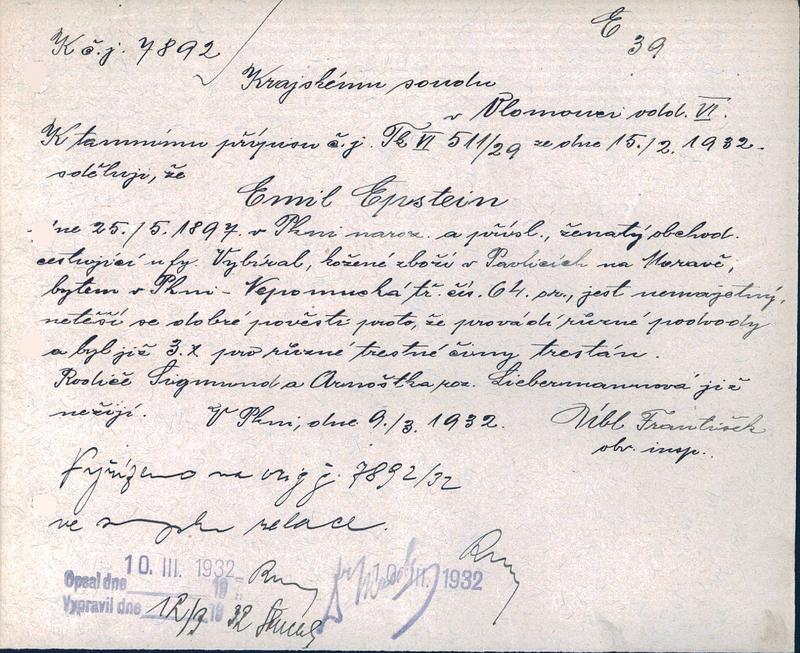 K č.j. 7892
E
39
Krajskému soudu
v Olomouci odd. VI.
K tamnímu přípisu č.j. Tk VI 511/29 ze dne 15./2. 1932
sděluji, že
Emil Epstein
ne 25./5. 1897. v Plzni naroz. a přísl., ženatý obchod.
cestující u fy. Vybíral, kožené zboží v Pavlicích na Moravě,
bytem v Plzni - Nepomucká tř. čís. 64. sr., jest nemajetný,
netěší se dobré pověsti proto, že provádí různé podvody
a byl již 3.x pro různé trestné činy trestán.
Rodiče Sigmund a Arnoštka roz. Liebermannová již
nežijí. V Plzni, dne 9./3. 1932. Uibl František
obv. insp..
Vyřízeno na orig č. 7892/32
ve smyslu relace.
10. III. 1932
Opsal dne 19
Vypravil dne 12/3 19 32
10. III. 1932